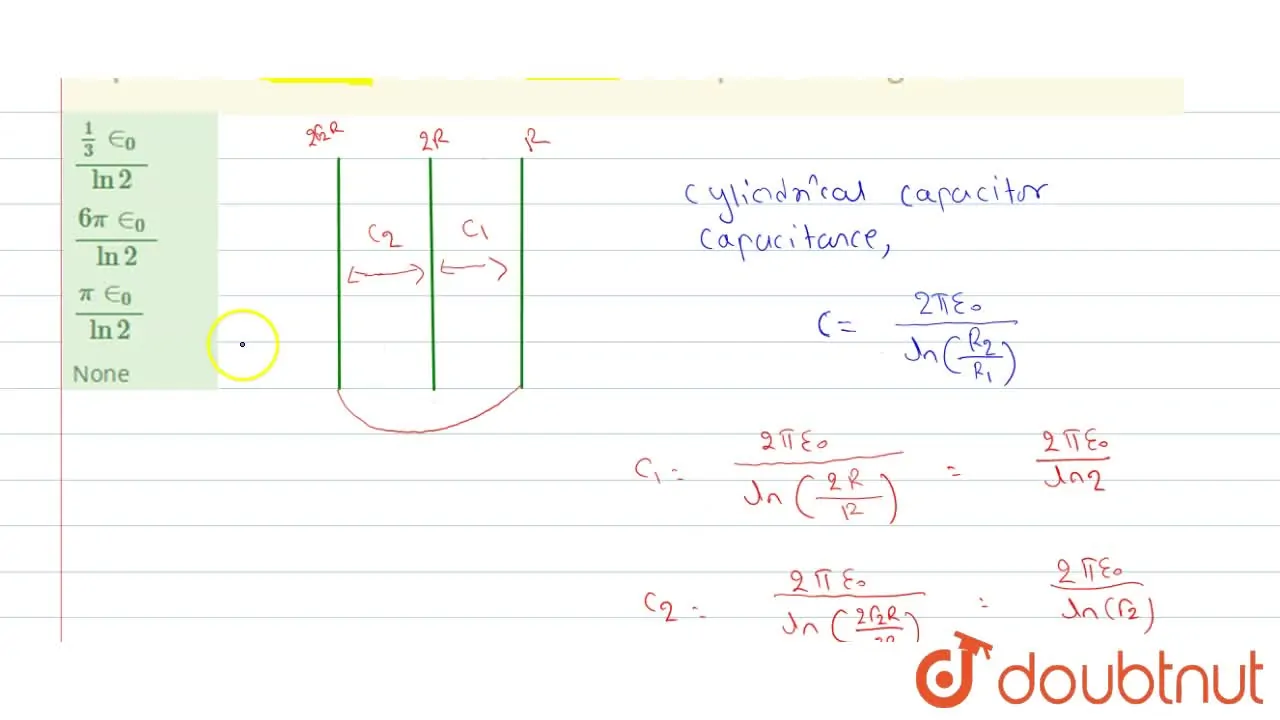 \frac{\frac{1}{3} ∈_0}{\ln 2}
\frac{6π ∈_0}{\ln 2}
\frac{π ∈_0}{\ln 2}
None
2√2R 2R R
C_2 C_1
cylindrical capacitor
capacitance,
C = \frac{2πε_0}{\ln(\frac{R_2}{R_1})}
C_1 = \frac{2πε_0}{\ln(\frac{2R}{R})} = \frac{2πε_0}{\ln 2}
C_2 = \frac{2πε_0}{\ln(\frac{2√2R}{2R})} = \frac{2πε_0}{\ln(√2)}
doubtnut